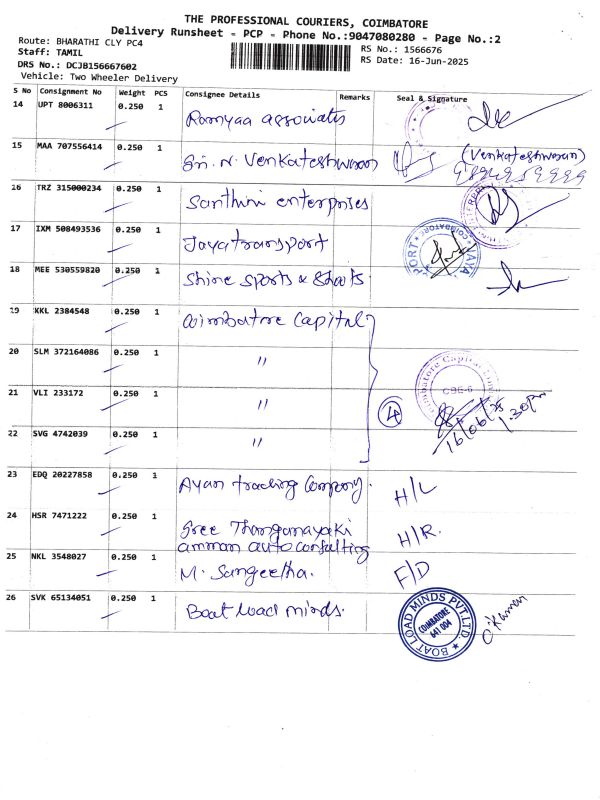 THE PROFESSIONAL COURIERS, COIMBATORE
Delivery Runsheet - PCP - Phone No.:9047080280 - Page No.:2
Route: BHARATHI CLY PC4
RS No.: 1566676
Staff: TAMIL
RS Date: 16-Jun-2025
DRS No.: DCJB156667602
Vehicle: Two Wheeler Delivery
S No Consignment No Weight PCS Consignee Details Remarks Seal & Signature
14 UPT 8006311 0.250 1 Ramyaa associates
15 MAA 707556414 0.250 1 Sri. N. Venkateshwaran (Venkateshwaran)
16 TRZ 315000234 0.250 1 Santhini enterprises
17 IXM 508493536 0.250 1 Jayatransport
COIMBATORE
JAYA
PORT
18 MEE 530559820 0.250 1 Shine sports & Shoots
19 KKL 2384548 0.250 1 Coimbatore Capital
20 SLM 372164086 0.250 1 "
21 VLI 233172 0.250 1 "
Coimbatore Capital
CBE-6
4
16/06/25
1.30pm
22 SVG 4742039 0.250 1 "
23 EDQ 20227858 0.250 1 Ayan trading Company. H/L
24 HSR 7471222 0.250 1 Sree Thangunayaki H/R.
amman auto consulting
25 NKL 3548027 0.250 1 M. Sangeetha. F/D
26 SVK 65134051 0.250 1 Boat load minds.
BOAT LOAD MINDS PVT.LTD.
COIMBATORE
641 004